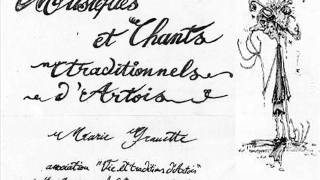 Musiques
et Chants
traditionnels
d'Artois
Marie Grauette
association "Vie et traditions d'Artois"